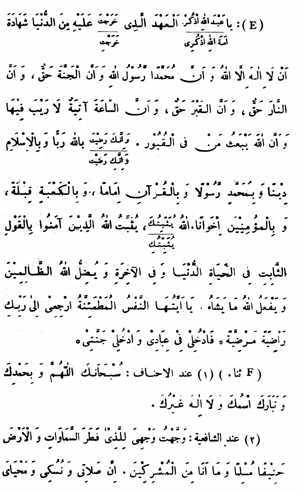 (E): يا عبد الله اذكر العهد الذى خرجت عليه من الدنيا شهادة
أمة الله اذكرى خرجت
ان لا اله الا الله و ان محمدا رسول الله و ان الجنة حق، و ان
النار حق، و ان القبر حق، و ان الساعة آتية لا ريب فيها
و ان الله يبعث من فى القبور. و انك رضيت بالله ربا و بالاسلام
و انك رضيت
دينا و بمحمد رسولا و بالقرآن اماما، و بالكعبة قبلة،
و بالمؤمنين اخوانا. الله يثبتك، يثبت الله الذين آمنوا بالقول
يثبتك
الثابت فى الحياة الدنيا و فى الآخرة و يضل الله الظالمين
و يفعل الله ما يشاء. يا ايتها النفس المطمئنة ارجعى الى ربك
راضية مرضية * فادخلى فى عبادى و ادخلى جنتى *
(F ثناء) (١) عند الاحناف: سبحانك اللهم و بحمدك
و تبارك اسمك و لا اله غيرك.
(٢) عند الشافعية: وجهت وجهى للذى فطر السماوات و الارض
حنيفا مسلما و ما انا من المشركين. ان صلاتى و نسكى و محياى